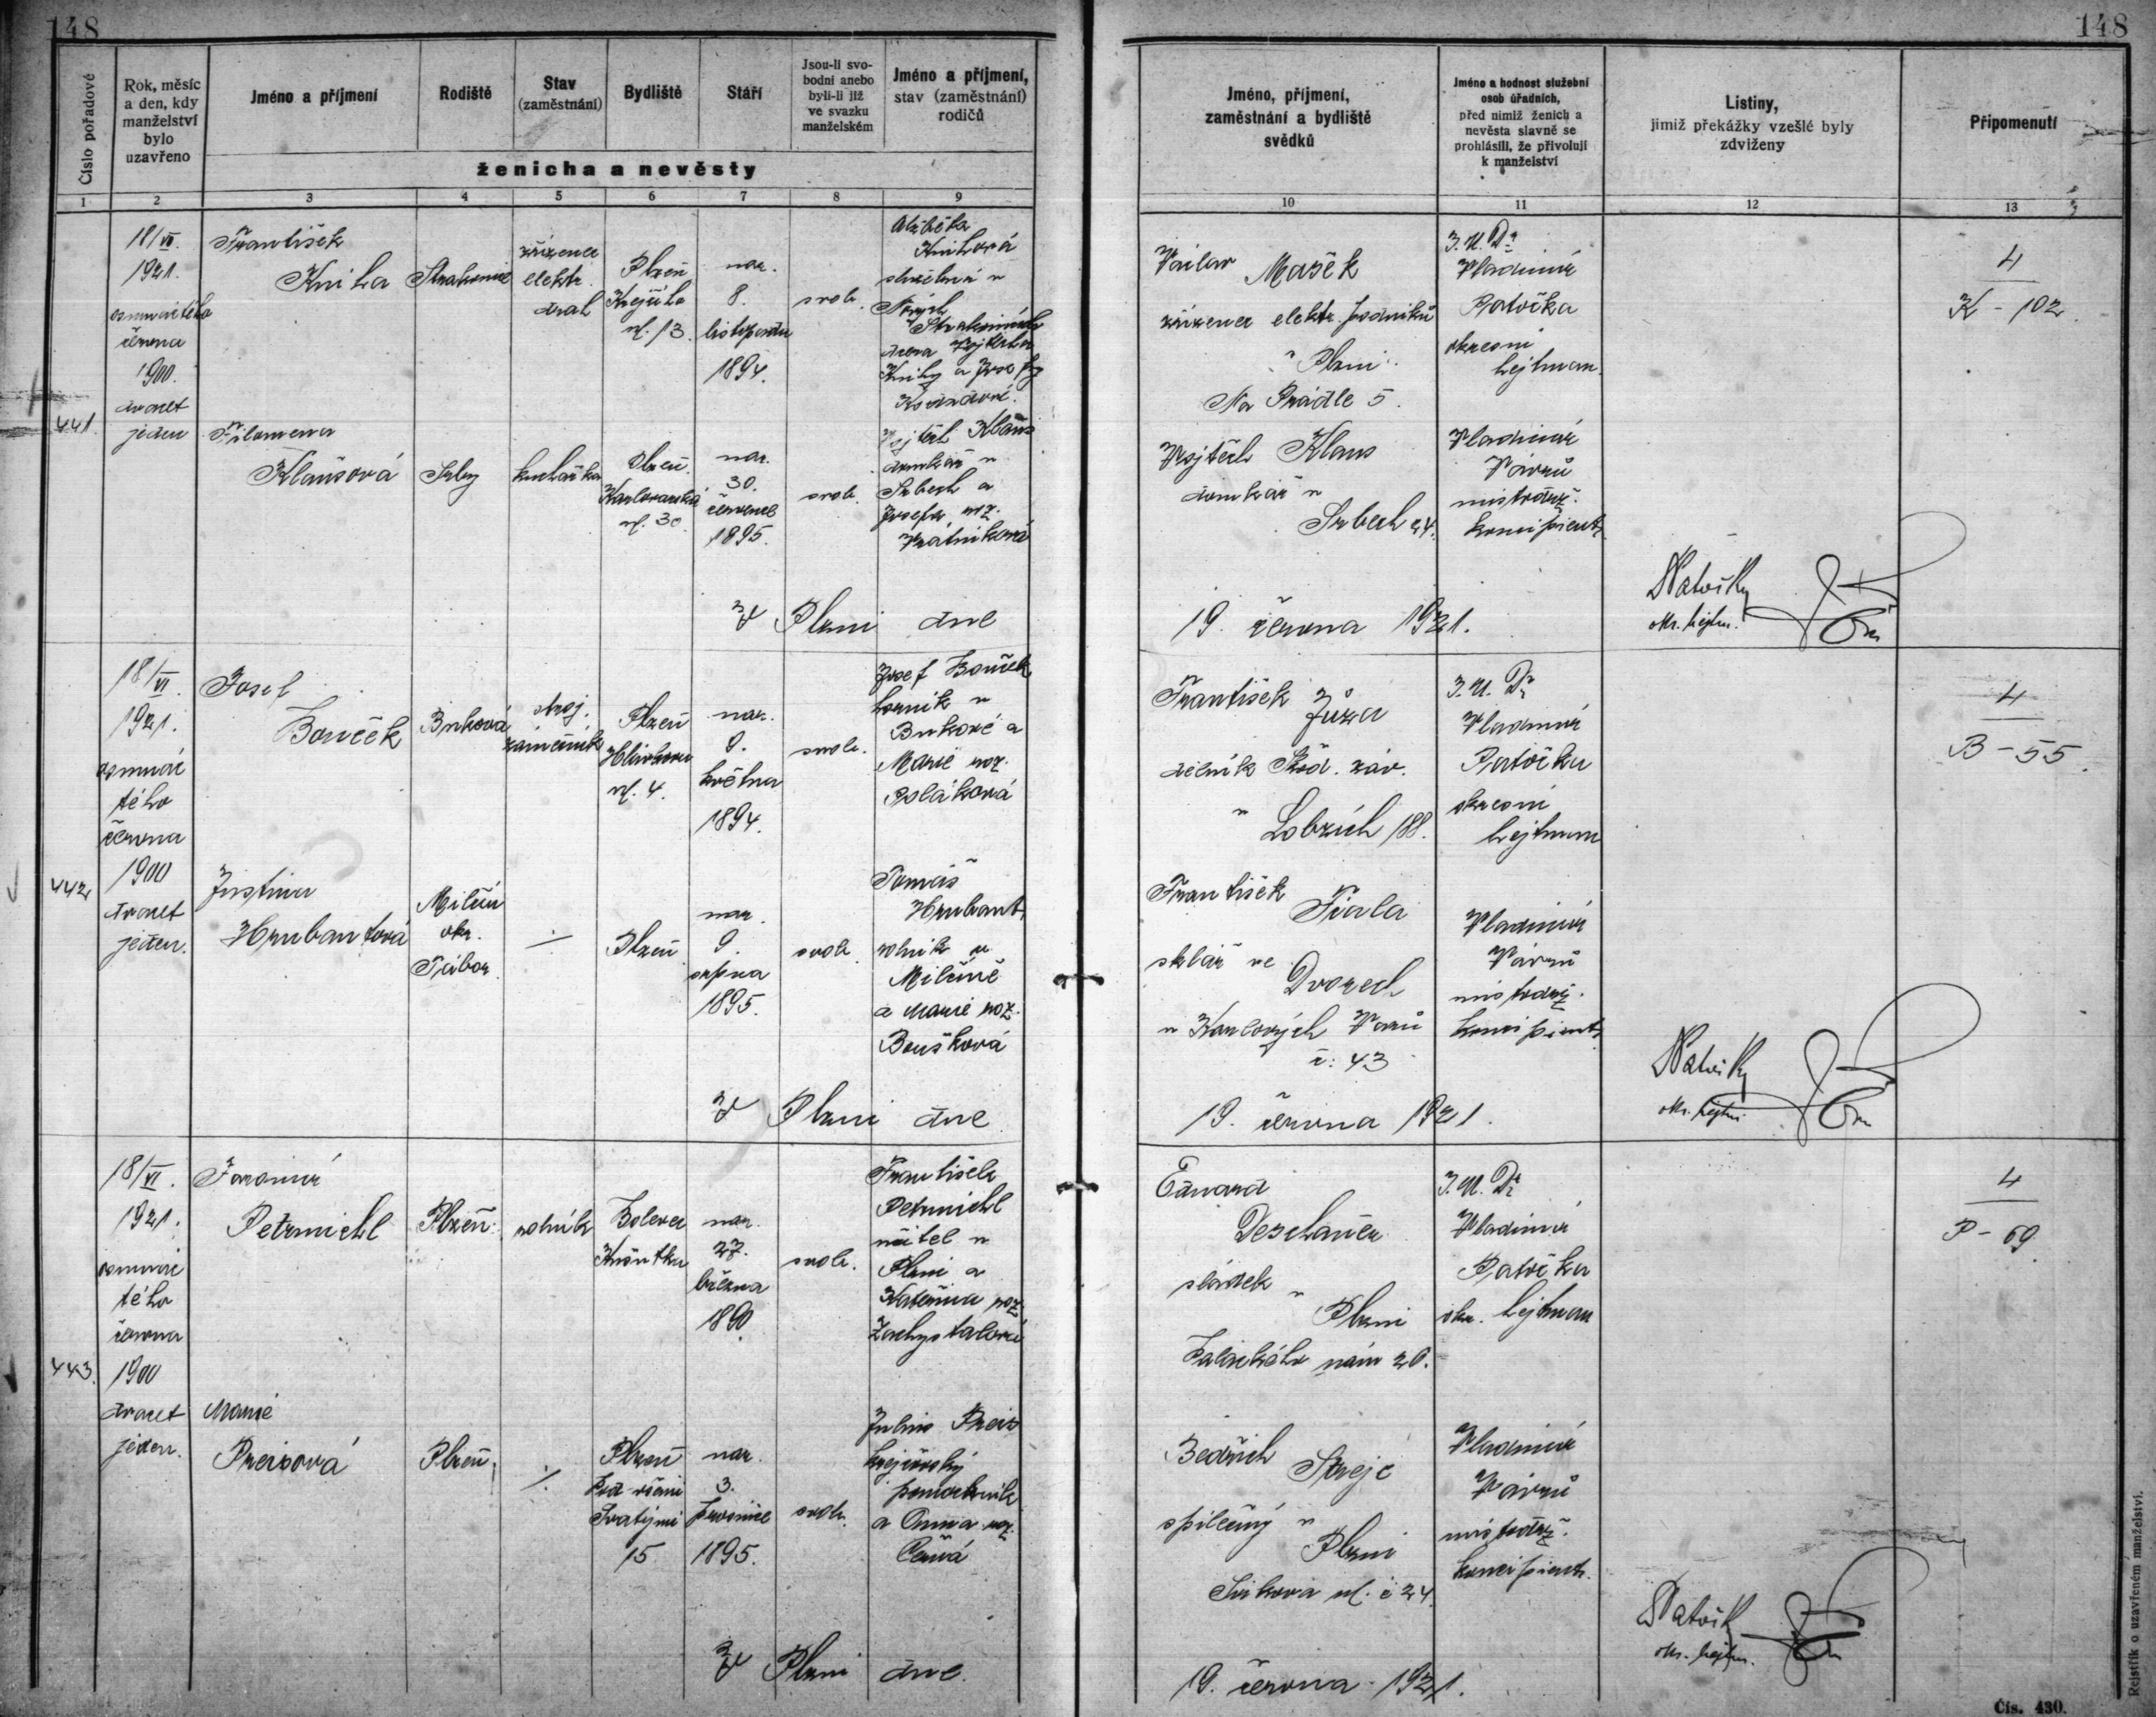 148
148
Číslo pořadové
Rok, měsíc
a den, kdy
manželství
bylo
uzavřeno
Jméno a příjmení
Rodiště
Stav
(zaměstnání)
Bydliště
Stáří
Jsou-li svo-
bodni anebo
byli-li již
ve svazku
manželském
Jméno a příjmení,
stav (zaměstnání)
rodičů
ženicha a nevěsty
Jméno, příjmení,
zaměstnání a bydliště
svědků
Jméno a hodnost služební
osob úřadních,
před nimiž ženich a
nevěsta slavně se
prohlásili, že přivolují
k manželství
Listiny,
jimiž překážky vzešlé byly
zdviženy
Připomenutí
1 2 3 4 5 6 7 8 9 10 11 12 13
441.
18/VI.
1921.
osmnáctého
června
1900
dvacet
jeden
František
Kniha
Strakonice
zřízenec
elektr.
drah
Plzeň
Krejčího
ul. 13.
nar.
8.
listopadu
1894.
svob.
Alžběta
Knihová
služebná v
Nových
Strakonicích
dcera Vojtěcha
Knihy a Josefy
Václav Mašek
zřízenec elektr. podniků
v Plzni
Na Prádle 5.
J.U.Dr
Vladimír
Patočka
okresní
hejtman.
4
K - 102.
Filomena
Klausová
Srby
kuchařka
Plzeň
Karlovarská
ul. 30.
nar.
30.
července
1895.
svob.
Vojtěch Klaus
domkář v
Srbech a
Josefa roz.
Vrátníková
Vojtěch Klaus
domkář v
Srbech 24.
Vladimír
Vávrů
místodrž.
koncipient.
V Plzni dne
19. června 1921.
Patočka
okr. hejtm.
442
18/VI.
1921.
osmnác
tého
června
1900
dvacet
jeden.
Josef
Bouček
Buková
stroj.
zámečník
Plzeň
Hlávkova
ul. 4.
nar.
9.
května
1894.
svob.
Josef Bouček
horník v
Bukové a
Marie roz.
Poláková
František Jůza
dělník Škod. záv.
v Lobzích 188.
J.U.Dr
Vladimír
Patočka
okresní
hejtman
4
B - 55.
Justina
Hrubantová
Miličín
okr.
Tábor
Plzeň
nar.
9.
srpna
1895.
svob.
Tomáš
Hrubant
rolník v
Miličíně
a Marie roz.
Boušková
František Fiala
sklář ve
Dvorech
u Karlových Varů
č. 43
Vladimír
Vávrů
místodrž.
koncipient.
V Plzni dne
19. června 1921.
Patočka
okr. hejtm.
443.
18/VI.
1921.
osmnác
tého
června
1900
dvacet
jeden.
Jaromír
Petrmichl
Plzeň
rolník
Bolevec
nar.
27.
března
1890.
svob.
František
Petrmichl
učitel v
Plzni a
Kateřina roz.
Zachystalová
Eduard
sládek
v Plzni
Palackého nám 20.
J.U.Dr
Vladimír
Patočka
okr. hejtman
4
P - 69.
Marie
Preisová
Plzeň
Plzeň
Pod všemi
Svatými
15
nar.
3.
prosince
1895.
svob.
Julius Preis
krejčovský
pomocník
a Anna roz.
Bedřich Strejc
spilečný v
Plzni
Vladimír
Vávrů
místodrž.
koncipient.
V Plzni dne
19. června 1921.
Patočka
okr. hejtm.
Rejstřík o uzavřeném manželství.
Čís. 430.